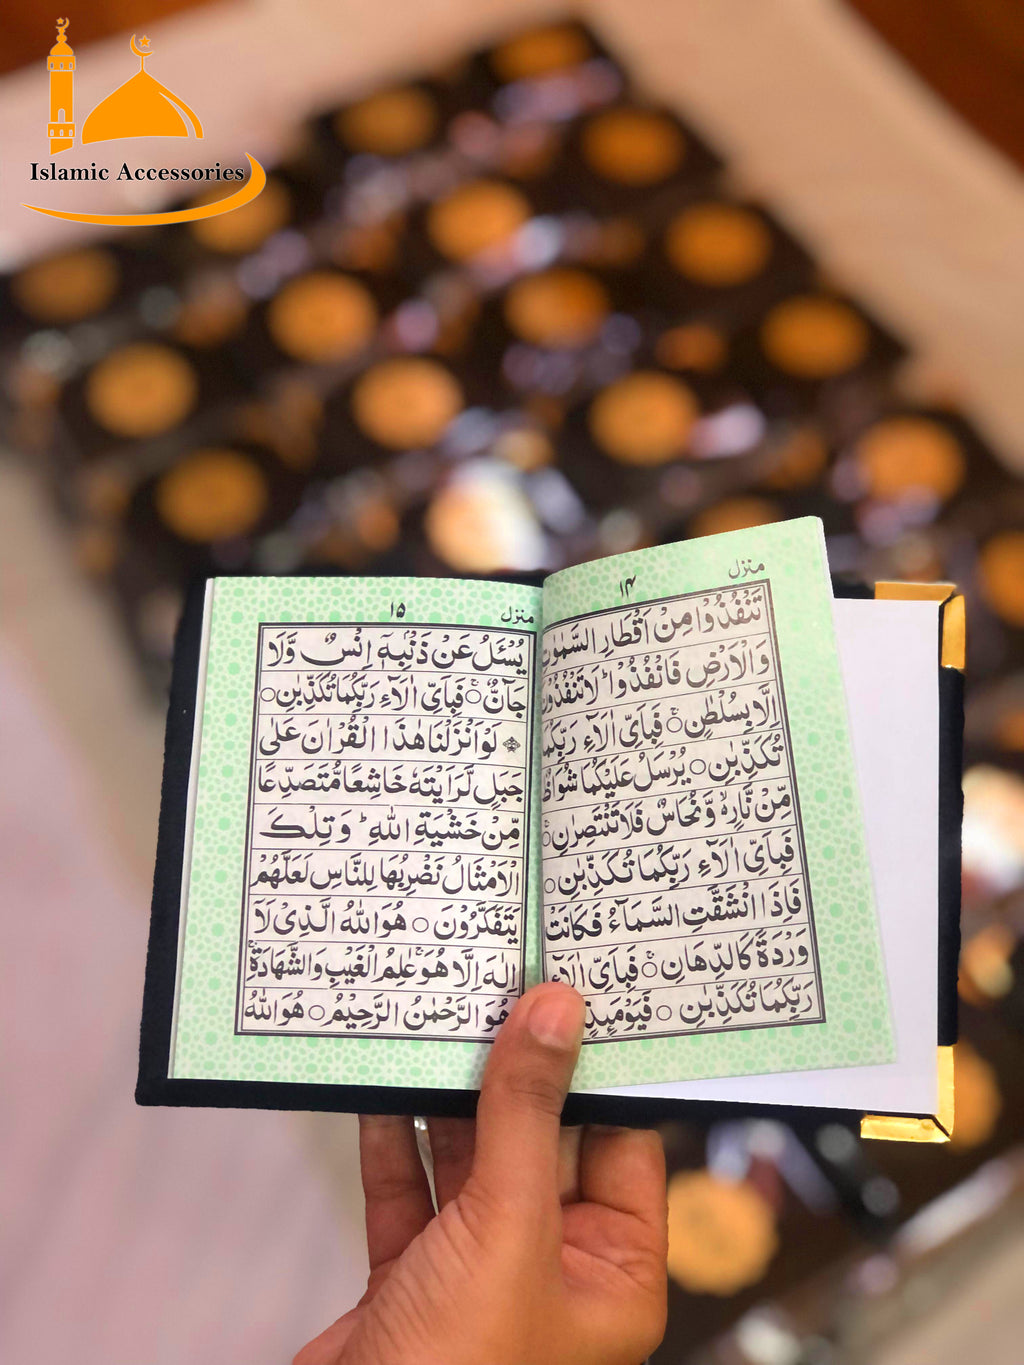 Islamic Accessories
منزل
۱۴
تَنْفُذُوْا مِنْ اَقْطَارِ السَّمٰوٰتِ
وَالْاَرْضِ فَانْفُذُوْا ؕ لَا تَنْفُذُوْنَ
اِلَّا بِسُلْطٰنٍ ۚ○ فَبِاَیِّ اٰلَآءِ رَبِّكُمَا
تُكَذِّبٰنِ ○ یُرْسَلُ عَلَیْكُمَا شُوَاظٌ
مِّنْ نَّارٍ ۙ۬ وَّ نُحَاسٌ فَلَا تَنْتَصِرٰنِ ○ۚ
فَبِاَیِّ اٰلَآءِ رَبِّكُمَا تُكَذِّبٰنِ ○
فَاِذَا انْشَقَّتِ السَّمَآءُ فَكَانَتْ
وَرْدَةً كَالدِّهَانِ ۚ○ فَبِاَیِّ اٰلَآءِ
رَبِّكُمَا تُكَذِّبٰنِ ○ فَیَوْمَىِٕذٍ
منزل
۱۵
یُسْـَٔلُ عَنْ ذَنْۢبِهٖۤ اِنْسٌ وَّلَا
جَآنٌّ ۚ○ فَبِاَیِّ اٰلَآءِ رَبِّكُمَا تُكَذِّبٰنِ ○
لَوْ اَنْزَلْنَا هٰذَا الْقُرْاٰنَ عَلٰی
جَبَلٍ لَّرَاَیْتَهٗ خَاشِعًا مُّتَصَدِّعًا
مِّنْ خَشْیَةِ اللّٰهِ ؕ وَ تِلْكَ
الْاَمْثَالُ نَضْرِبُهَا لِلنَّاسِ لَعَلَّهُمْ
یَتَفَكَّرُوْنَ ○ هُوَ اللّٰهُ الَّذِیْ لَاۤ
اِلٰهَ اِلَّا هُوَ ۚ عٰلِمُ الْغَیْبِ وَالشَّهَادَةِ ۚ
هُوَ الرَّحْمٰنُ الرَّحِیْمُ ○ هُوَ اللّٰهُ